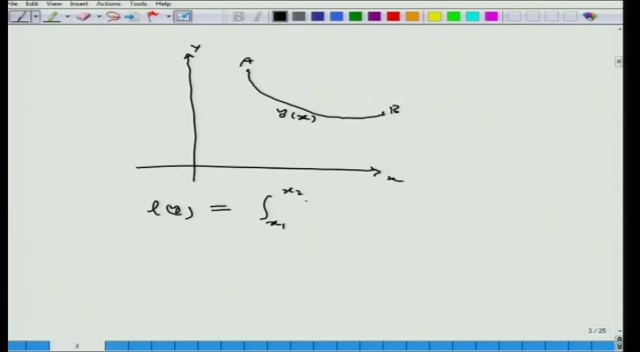 File Edit View Insert Actions Tools Help
Y
A
B
y(x)
x
l(y) = ∫ x₁ x₂
3 / 25
3